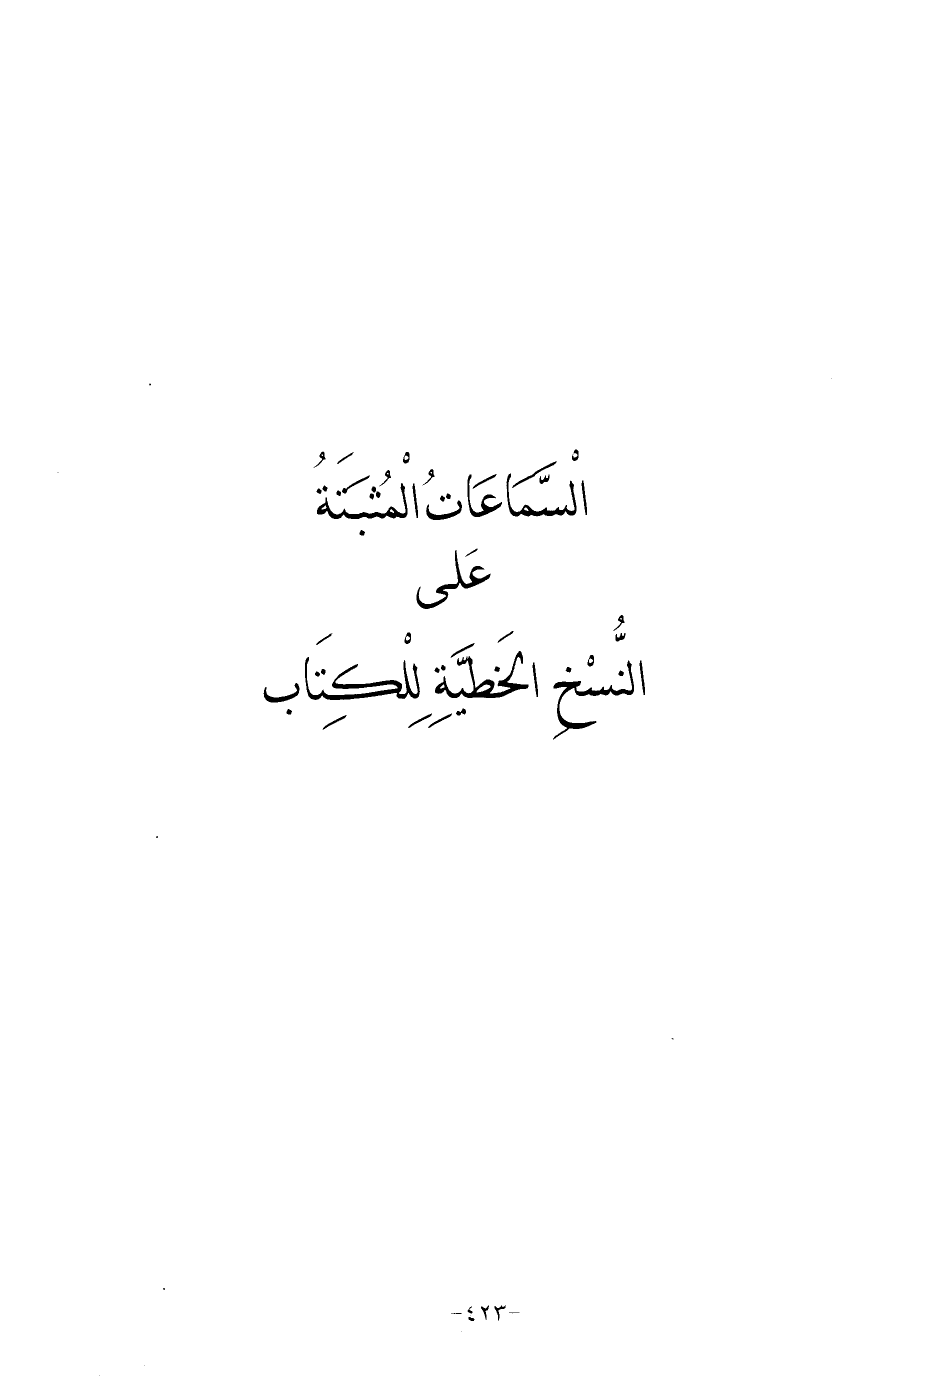 الْسَّمَاعَاتُ الْمُثبَتَةُ
عَلى
النُّسْخِ الخَطيَّةِ لِلْكِتَاب
-٤٢٣-